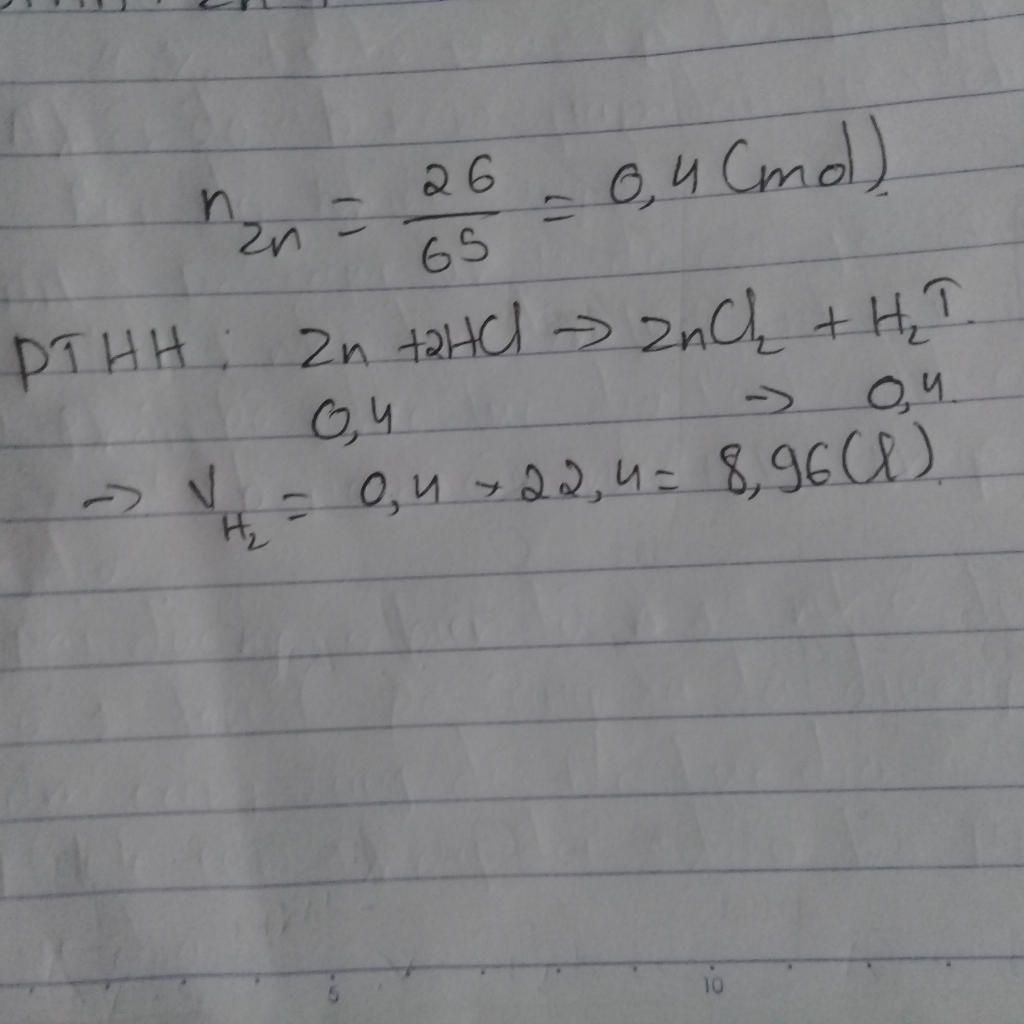 n Zn = 26/65 = 0,4 (mol)
PTHH: Zn + 2HCl → ZnCl₂ + H₂↑
0,4 → 0,4
→ V H₂ = 0,4 × 22,4 = 8,96 (l)
5 10